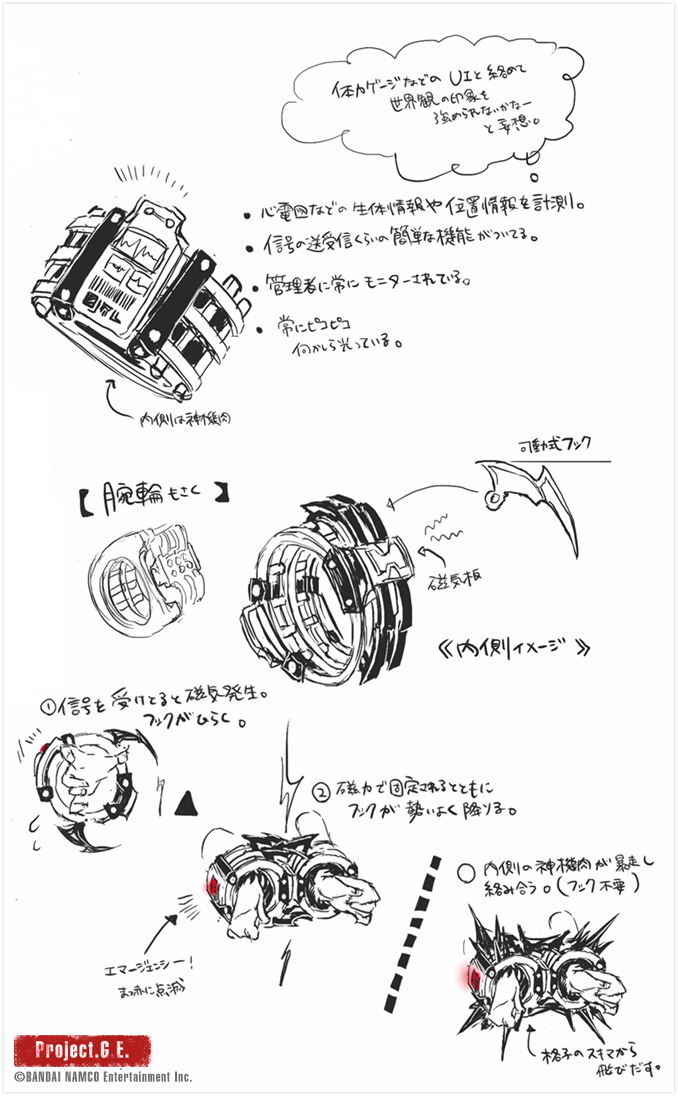 体力ゲージなどの UIと絡めて
世界観の印象を
強められないかなー
と妄想。
• 心電図などの生体情報や位置情報を計測。
• 信号の送受信くらいの簡単な機能がついてる。
• 管理者に常にモニターされている。
• 常にピコピコ
何かしら光っている。
内側は神機肉
可動式フック
【腕輪もさく】
磁気板
《内側イメージ》
①信号を受けとると磁気発生。
フックがひらく。
②磁力で固定されるとともに
フックが勢いよく降りる。
○ 内側の神機肉が暴走し
絡み合う。(フック不要)
エマージェンシー!
まっ赤に点滅
格子のスキマから
飛びだす。
Project.G.E.
©BANDAI NAMCO Entertainment Inc.